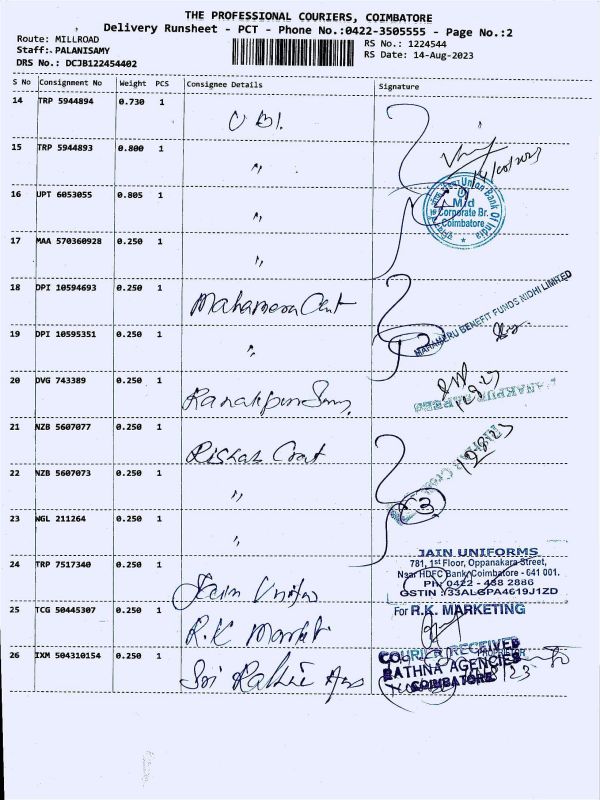 THE PROFESSIONAL COURIERS, COIMBATORE
Delivery Runsheet - PCT - Phone No.:0422-3505555 - Page No.:2
Route: MILLROAD
Staff: PALANISAMY
DRS No.: DCJB122454402
RS No.: 1224544
RS Date: 14-Aug-2023
S No Consignment No Weight PCS Consignee Details Signature
14 TRP 5944894 0.730 1 UBI.
15 TRP 5944893 0.800 1 〃
16 UPT 6053055 0.805 1 〃
17 MAA 570360928 0.250 1 〃
Union Bank Of India
Mid
Corporate Br.
Coimbatore
18 DPI 10594693 0.250 1
19 DPI 10595351 0.250 1 〃
MAHAMERU BENEFIT FUNDS NIDHI LIMITED
20 DVG 743389 0.250 1
21 NZB 5607077 0.250 1
22 NZB 5607073 0.250 1 〃
23 NGL 211264 0.250 1 〃
3
24 TRP 7517340 0.250 1 Jain
JAIN UNIFORMS
781, 1st Floor, Oppanakara Street,
Near HDFC Bank, Coimbatore - 641 001.
Ph: 0422 - 458 2886
GSTIN : 33ALGPA4619J1ZD
25 TCG 50445307 0.250 1 R.K Market
For R.K. MARKETING
PROPRIETOR
26 IXM 504310154 0.250 1 Sri
COURIER RECEIVED
RATHNA AGENCIES
COIMBATORE